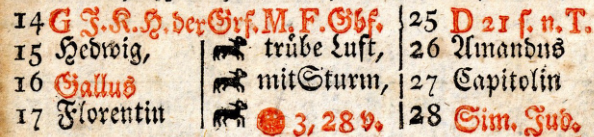 14 G J. K. H. der Grf. M. F. Gbf. 25 D 21 s. n. T.
15 Hedwig, trübe Luft, 26 Amandus
16 Gallus mit Sturm, 27 Capitolin
17 Florentin 3, 28 v. 28 Sim. Jud.